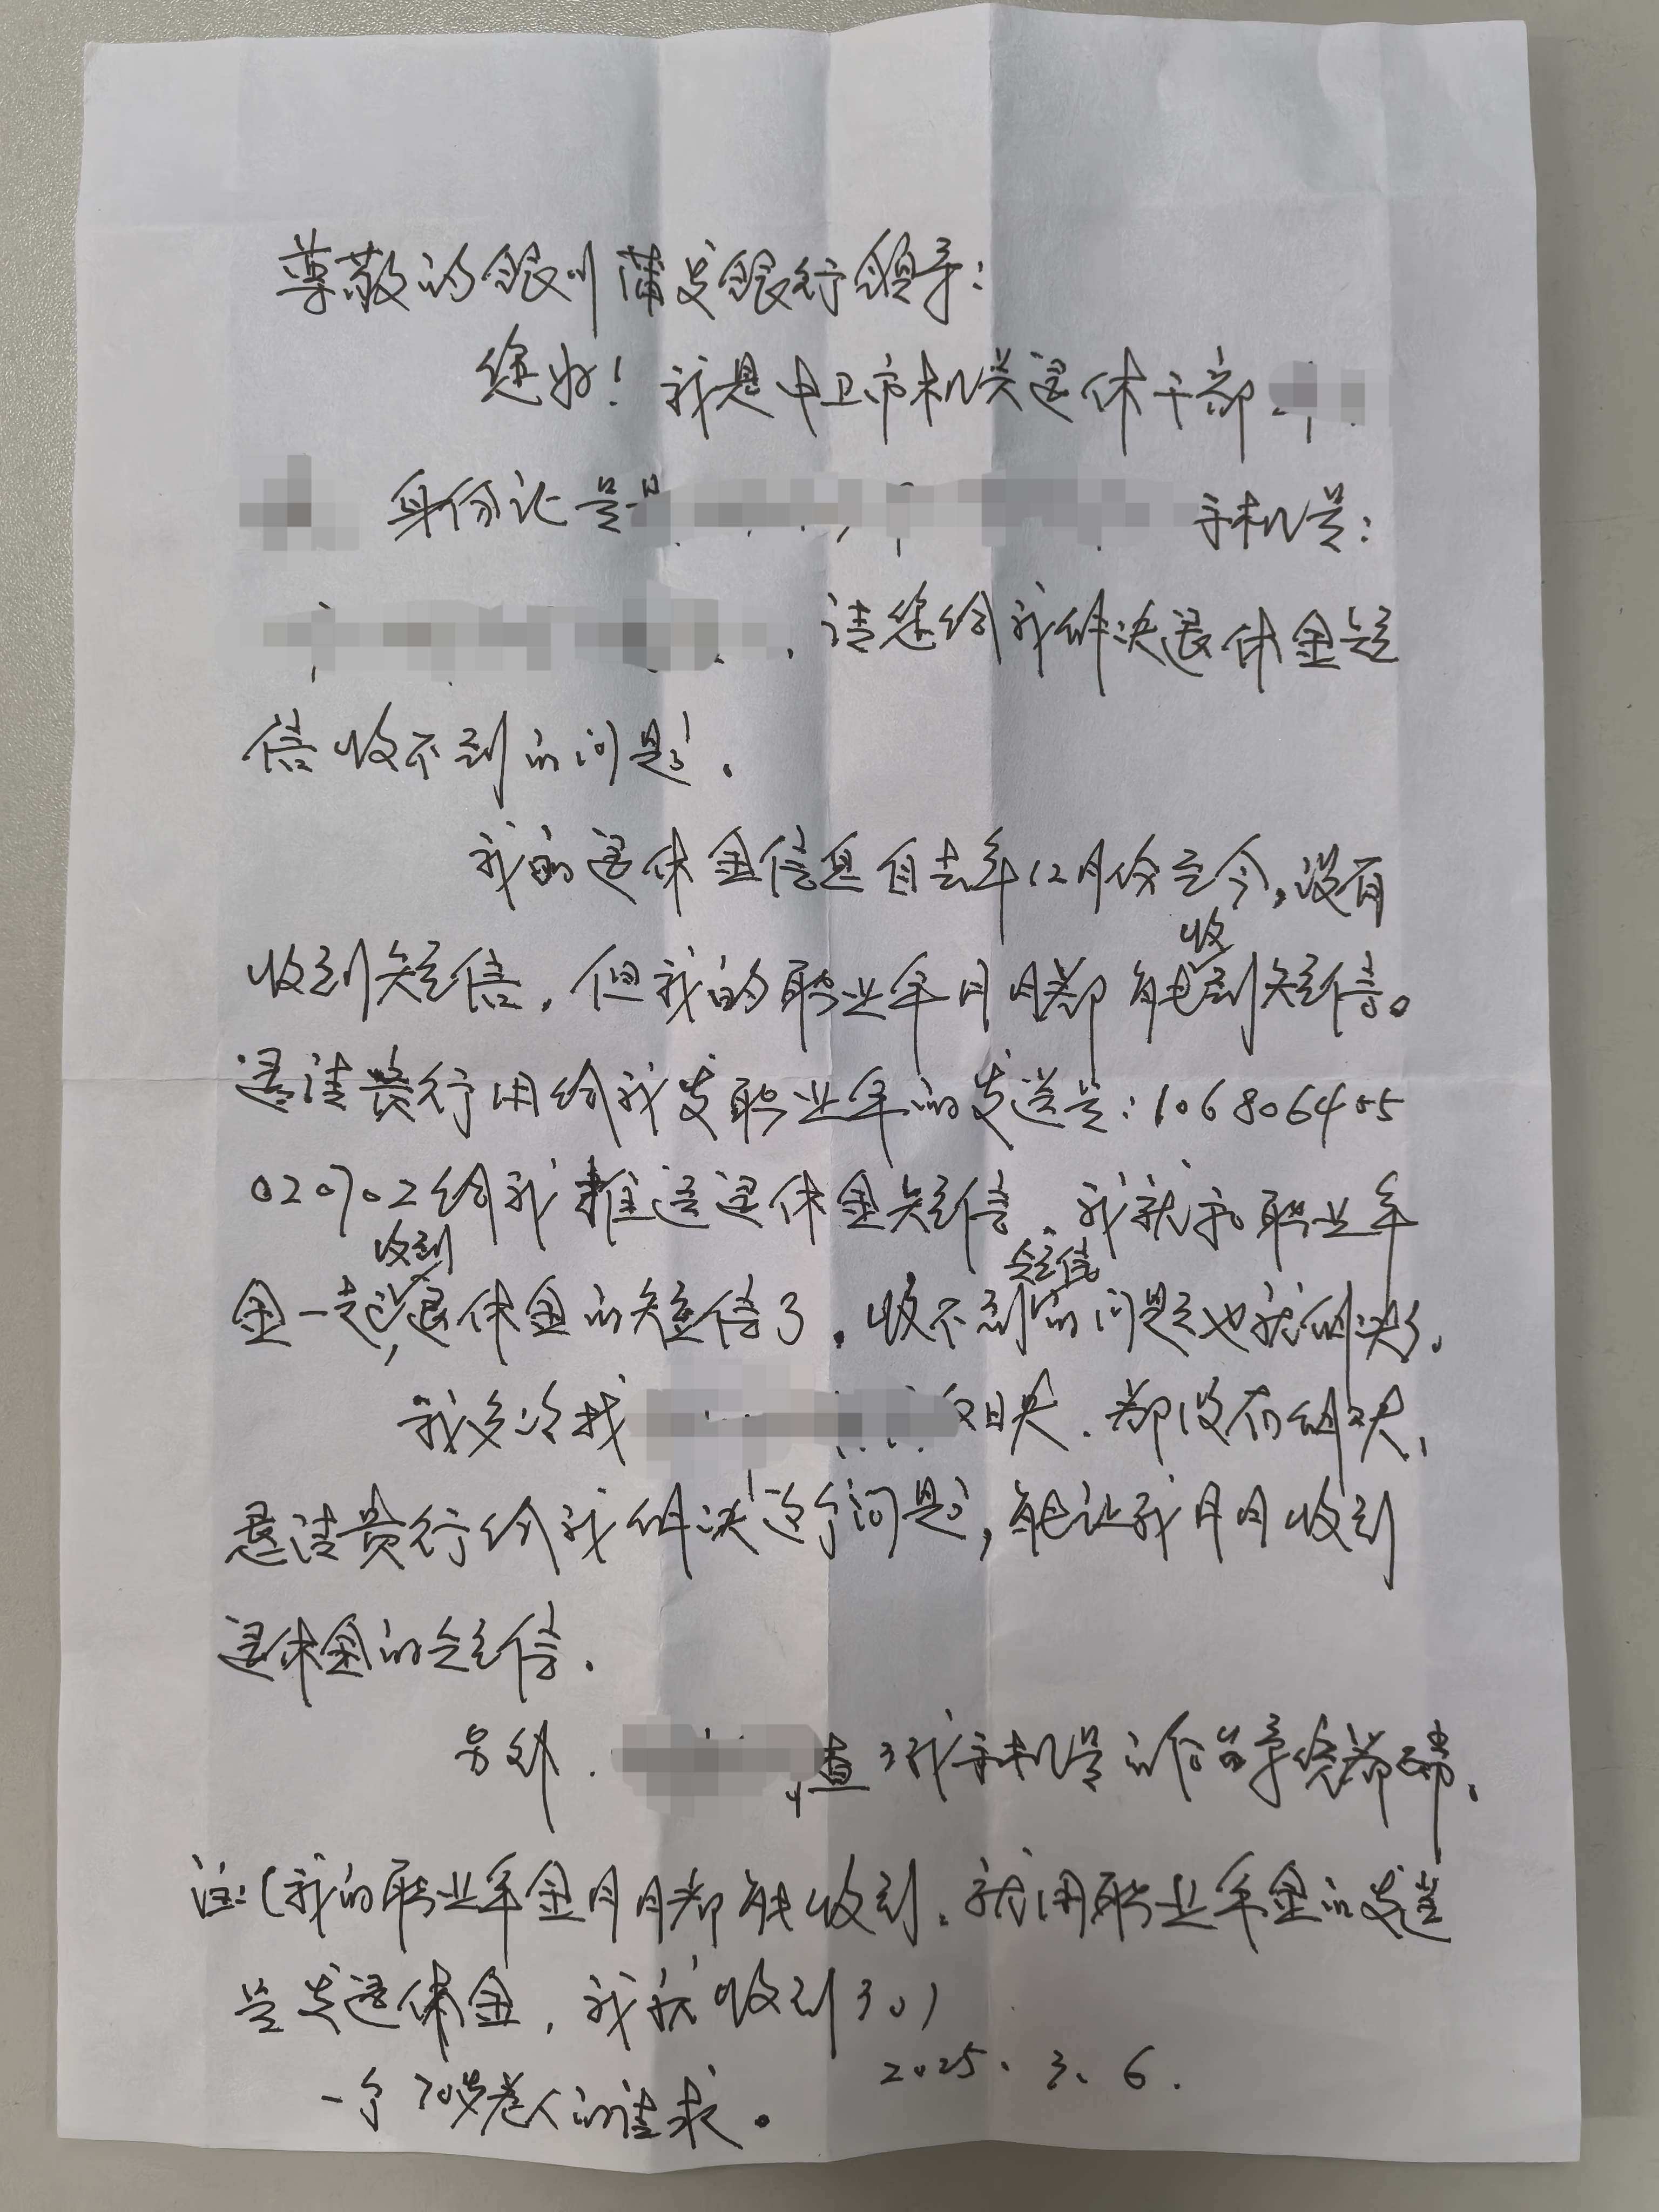 尊敬的银川蒲发银行领导：
您好！我是中卫市机关退休干部
身份证号 手机号：
请您给我解决退休金短
信收不到的问题。
我的退休金信息自去年12月份至今，没有
收到短信，但我的职业年月月都能收到短信。
请贵行用给我发职业年的发送号：1068064055
020702给我推送退休金短信，我就和职业年
金一起，收到退休金的短信了，收不到短信的问题也就解决了。
我多次找 都没有解决，
恳请贵行给我解决这个问题，能让我月月收到
退休金的短信。
另外， 查了我手机号的信
注：（我的职业年金月月都能收到，就用职业年金的发送
号发退休金，我就收到了。）
2025.3.6.
一个70岁老人的请求。